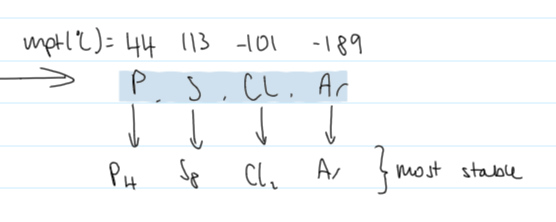 mpt(℃)= 44 113 -101 -189
P, S, Cl, Ar
P₄ S₈ Cl₂ Ar } most stable